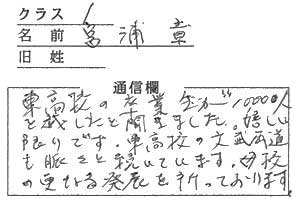 クラス
名前 宮浦章
旧姓
通信欄
東高校の卒業生が10000人
を越したと聞きました。嬉しい
限りです。東高校の文武両道
も脈々と続いています。母校
の更なる発展を祈っております。